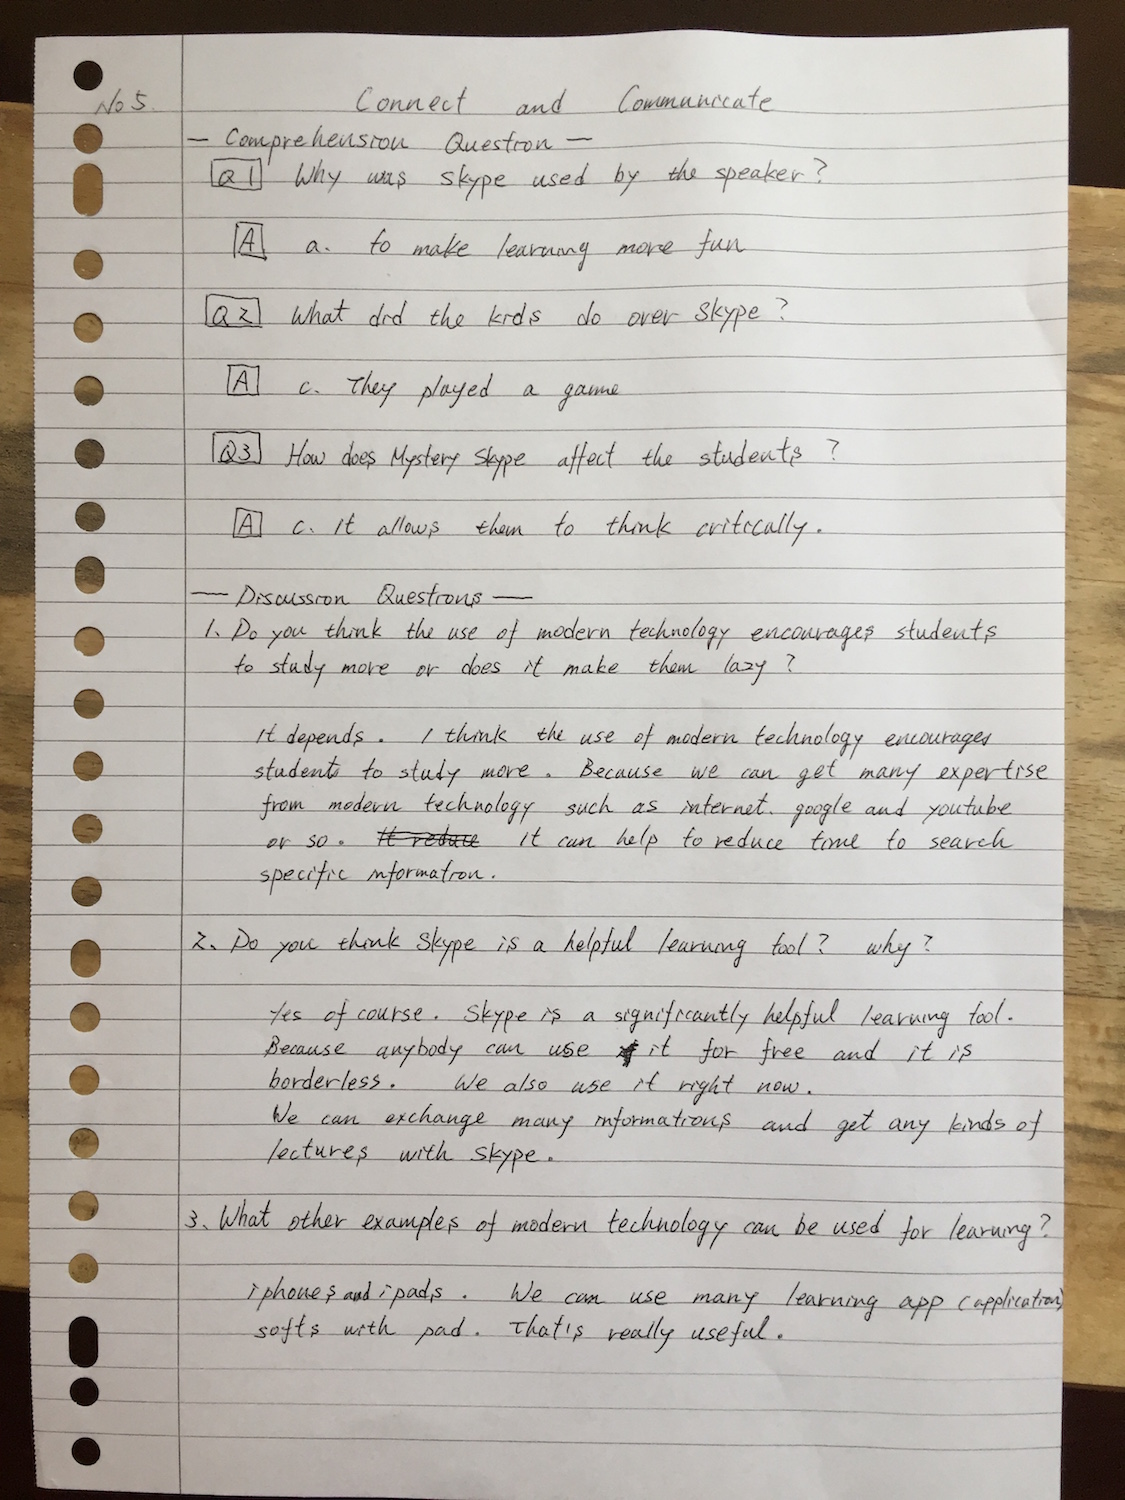 No 5.
Connect and Communicate
— Comprehension Question —
Q1 Why was skype used by the speaker?
A a. to make learning more fun
Q2 What did the kids do over Skype?
A c. They played a game
Q3 How does Mystery Skype affect the students?
A c. It allows them to think critically.
— Discussion Questions —
1. Do you think the use of modern technology encourages students
to study more or does it make them lazy?
It depends. I think the use of modern technology encourages
students to study more. Because we can get many expertise
from modern technology such as internet. google and youtube
or so. It reduce It can help to reduce time to search
specific information.
2. Do you think Skype is a helpful learning tool? why?
Yes of course. Skype is a significantly helpful learning tool.
Because anybody can use it for free and it is
borderless. We also use it right now.
We can exchange many informations and get any kinds of
lectures with skype.
3. What other examples of modern technology can be used for learning?
iphones and ipads. We can use many learning app (application)
softs with pad. That's really useful.